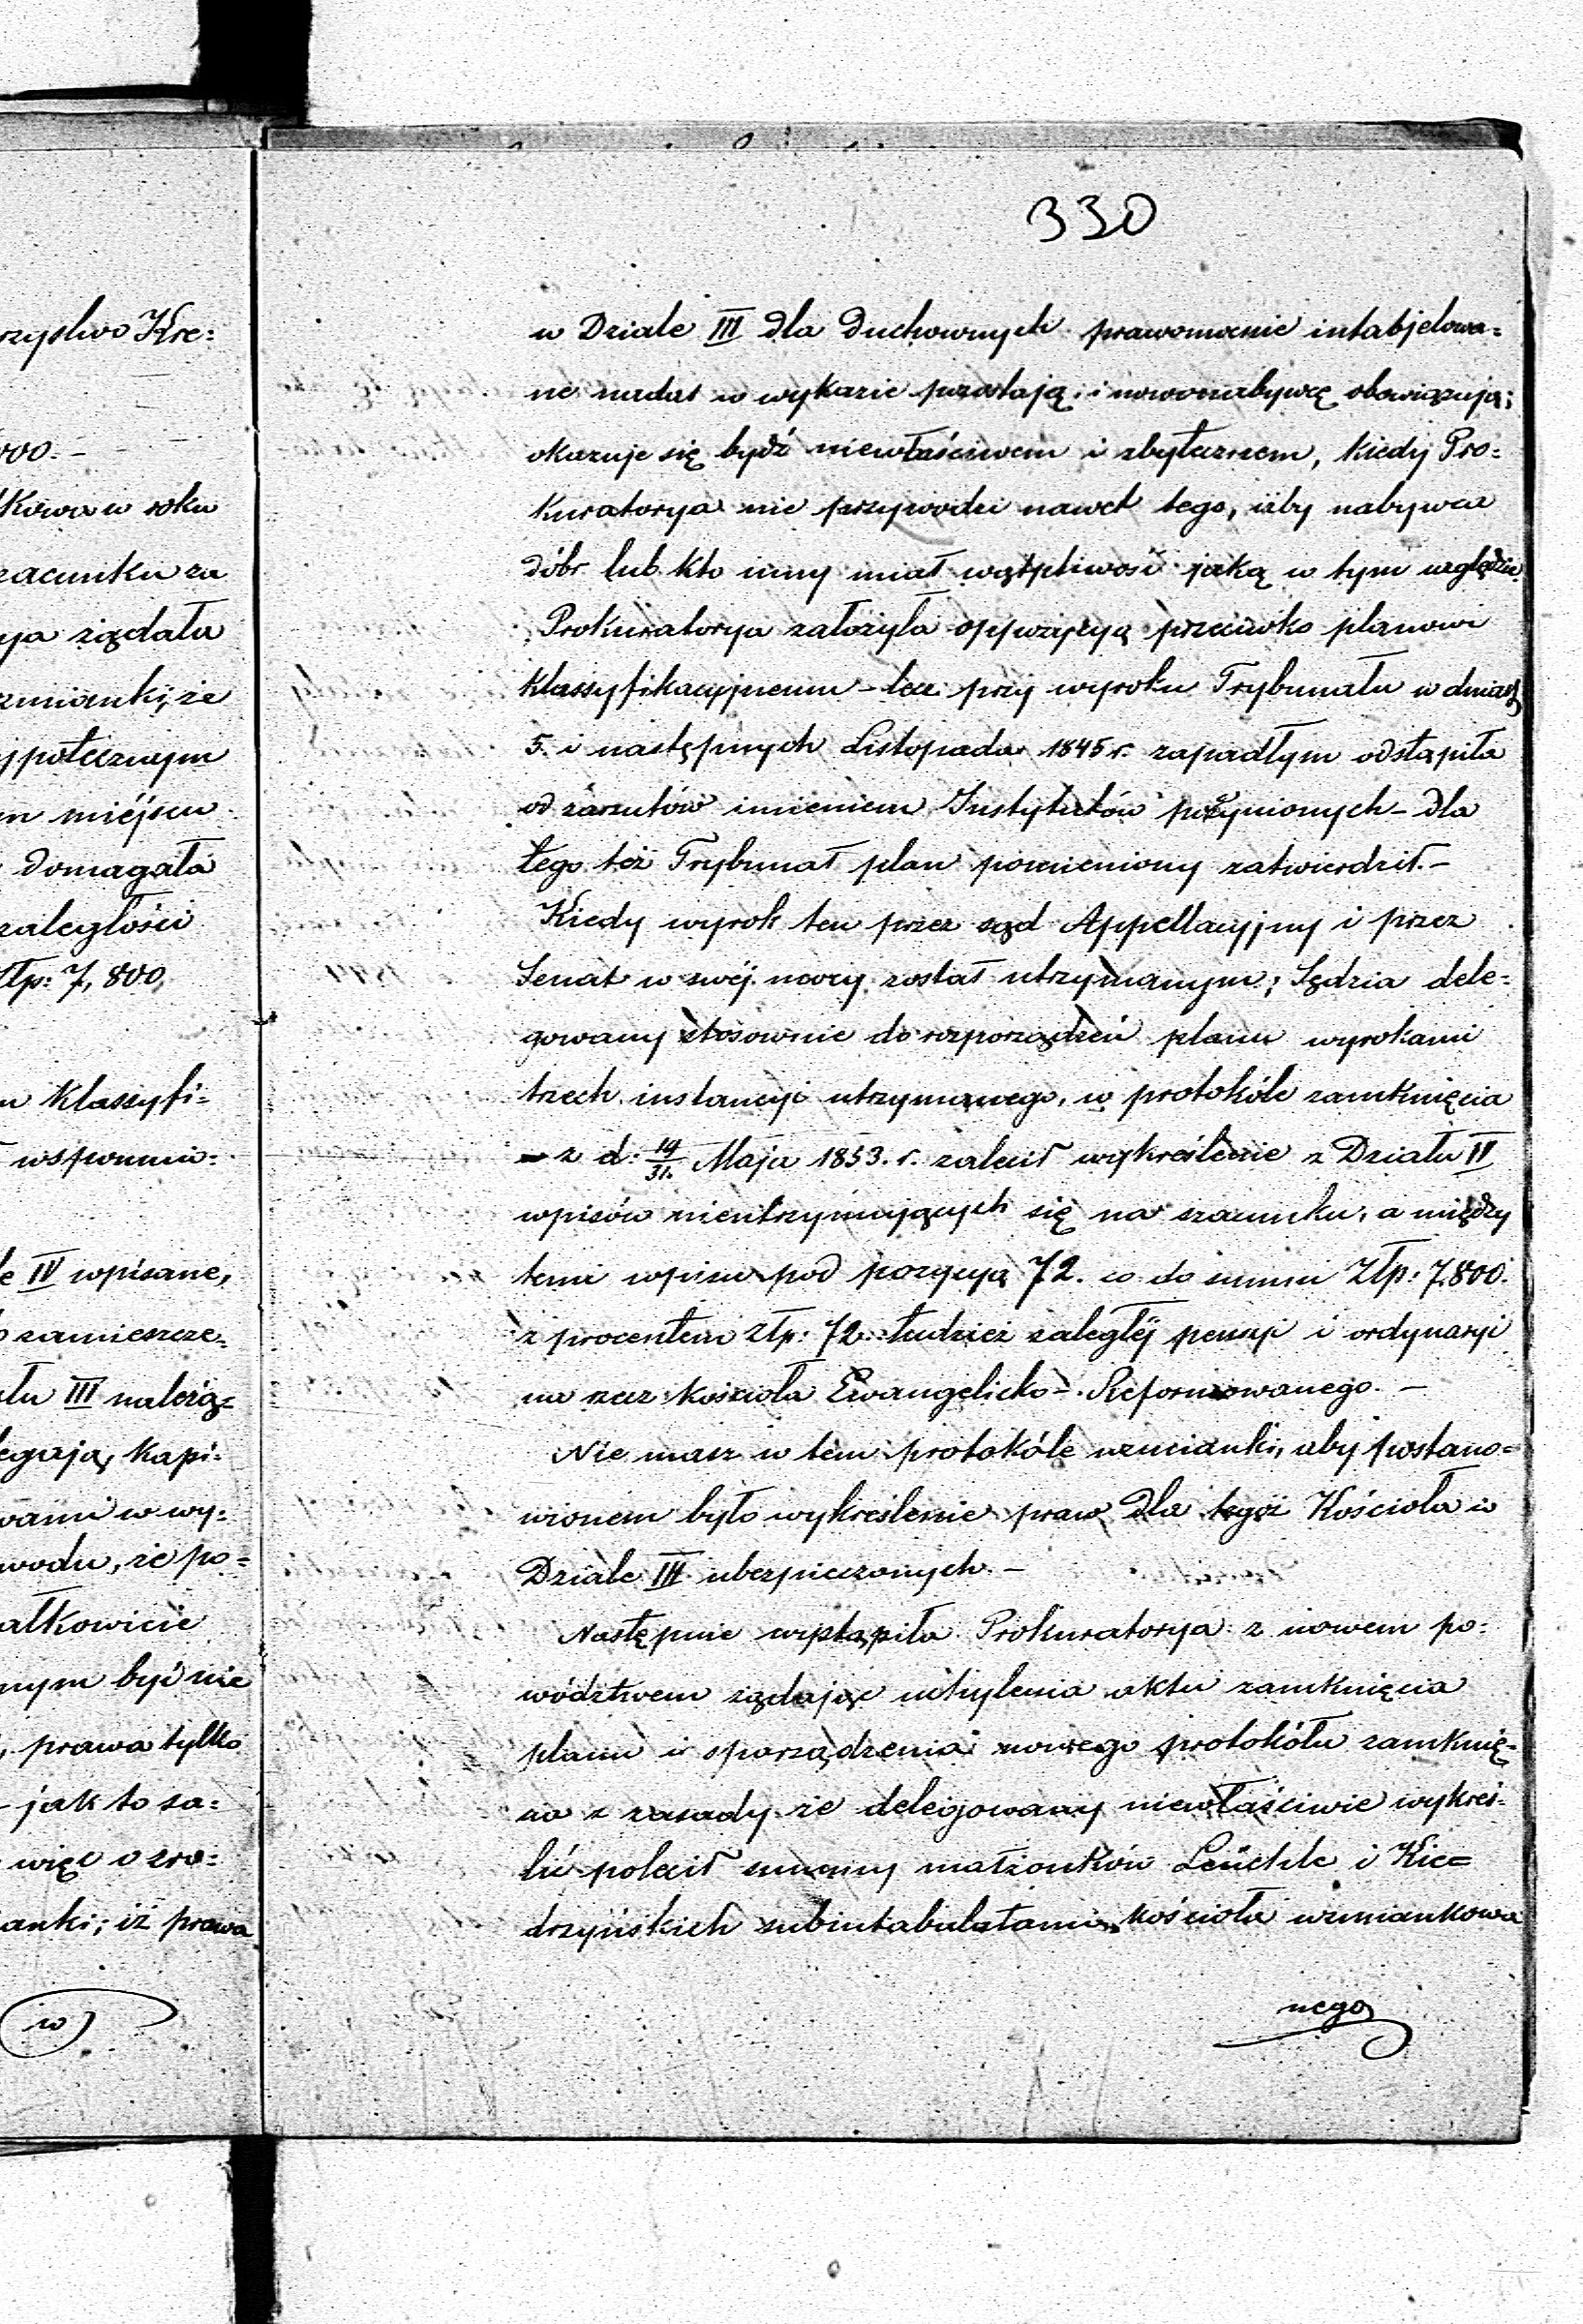 rzystwo Kre=
000.-
kowa w roku
zacunku za
ya żądała
zmianki, że
ypotecznym
m miéjscu
domagała
zaległości
Złp: 7,800.
m Klassyfi=
wspomnio=
le IV wpisane,
zamieszcze=
łu III należą=
legają, kapi=
wami w wy=
wodu, że po=
ałkowicie
nym być nie
, prawa tylko
- jak to są=
więc o zro=
anki; iż prawa
w
330
w Dziale III dla Duchownych prawomocnie intabjelowa=
ne nadal w wykazie pozostają i nowonabywcę obowiązują;
okazuje się bydź niewłaściwem i zbytecznem, kiedy Pro=
kuratorya nie przywodzi nawet tego, iżby nabywca
dóbr lub kto inny miał wątpliwość jaką w tym względzie.
Prokuratorya założyła oppozycyą przeciwko planowi
Klassyfikacyjnemu - lecz przy wyroku Trybunału w dniach
5. i następnych Listopada 1845 r. zapadłym odstąpiła
od zarzutów imieniem Instytutów poczynionych - dla
tego też Trybunał plan pomieniony zatwierdził.-
Kiedy wyrok ten przez sąd Appellacyjny i przez
Senat w swéj mocy został utrzymanym; Sędzia dele=
gowany stosownie do rozporządzeń planu wyrokami
trzech instancyi utrzymanego, w protokóle zamknięcia
z d: 19/31. Maja 1853. r. zalecił wykreślenie z Działu IV
wpisów nieutrzymujących się na szacunku, a między
temi wpisu pod pozycyą 72. co do summ Złp: 7,800.
z procentem złp: 72. tudzież zaległéj pensyi i ordynaryi
na rzecz kościoła Ewangelicko-Reformowanego. -
Nie masz w tem protokóle wzmianki, aby postano=
wionem było wykreślenie praw dla tegoż Kościoła w
Dziale III ubezpieczonych. -
Następnie wystąpiła Prokuratorya z nowem po=
wództwem żądając uchylenia aktu zamknięcia
planu i sporządzenia nowego protokółu zamknię=
cia z zasady że delegowany niewłaściwie wykreś=
lić polecił summy małżonków Leüchte i Kie=
drzyńskich subintabulatami kościoła wzmiankowa
nego